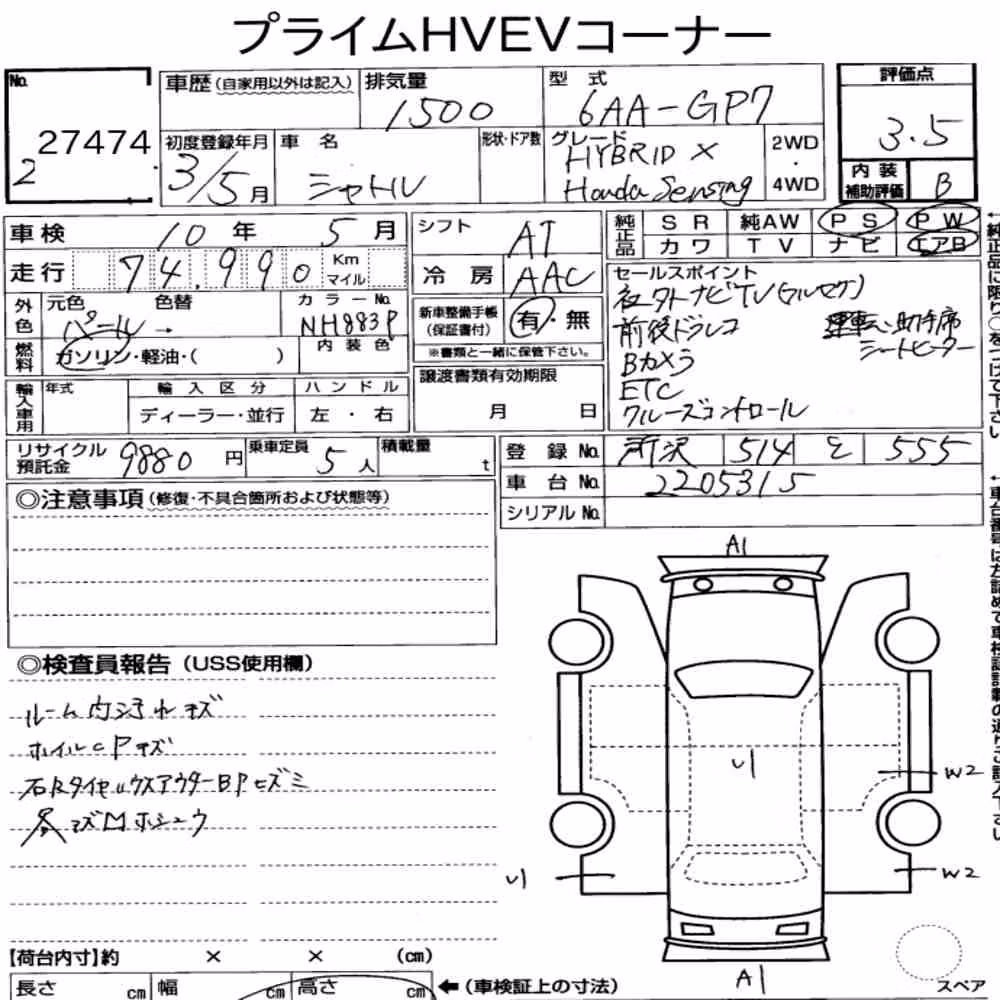 プライムHVEVコーナー
No.
27474
2
車歴(自家用以外は記入)
排気量
1500
型 式
6AA-GP7
評価点
3.5
初度登録年月
3/5月
車 名
シャトル
形状・ドア数
グレード
HYBRID X
Honda Sensing
2WD
・
4WD
内 装
補助評価
B
車検 10年 5月
シフト AT
純正品
S R 純AW P S P W
カワ T V ナビ エアB
走行 74,990 Km
マイル
冷 房 AAC
セールスポイント
社外ナビTV(フルセグ)
前後ドラレコ
運転、助手席
シートヒーター
Bカメラ
ETC
クルーズコントロール
外色
元色 色替
パール→
カラーNo.
NH883P
新車整備手帳
(保証書付)
有・無
※書類と一緒に保管下さい。
燃料
ガソリン・軽油・( )
内 装 色
譲渡書類有効期限
月 日
輸入車用
年式
輸 入 区 分
ハ ン ド ル
ディーラー・並行
左 ・ 右
リサイクル
預託金
9880円
乗車定員
5人
積載量
t
登 録 No. 所沢 514 を 555
車 台 No. 2205315
シリアル No.
◎注意事項(修復・不具合箇所および状態等)
◎検査員報告(USS使用欄)
ルーム内汚れキズ
ホイルCPキズ
ホシュウ
A1
U1
W2
U1
W2
A1
【荷台内寸】約 × × (cm)
長さ cm 幅 cm 高さ cm
←(車検証上の寸法)
スペア
←純正品に限り○をつけて下さい